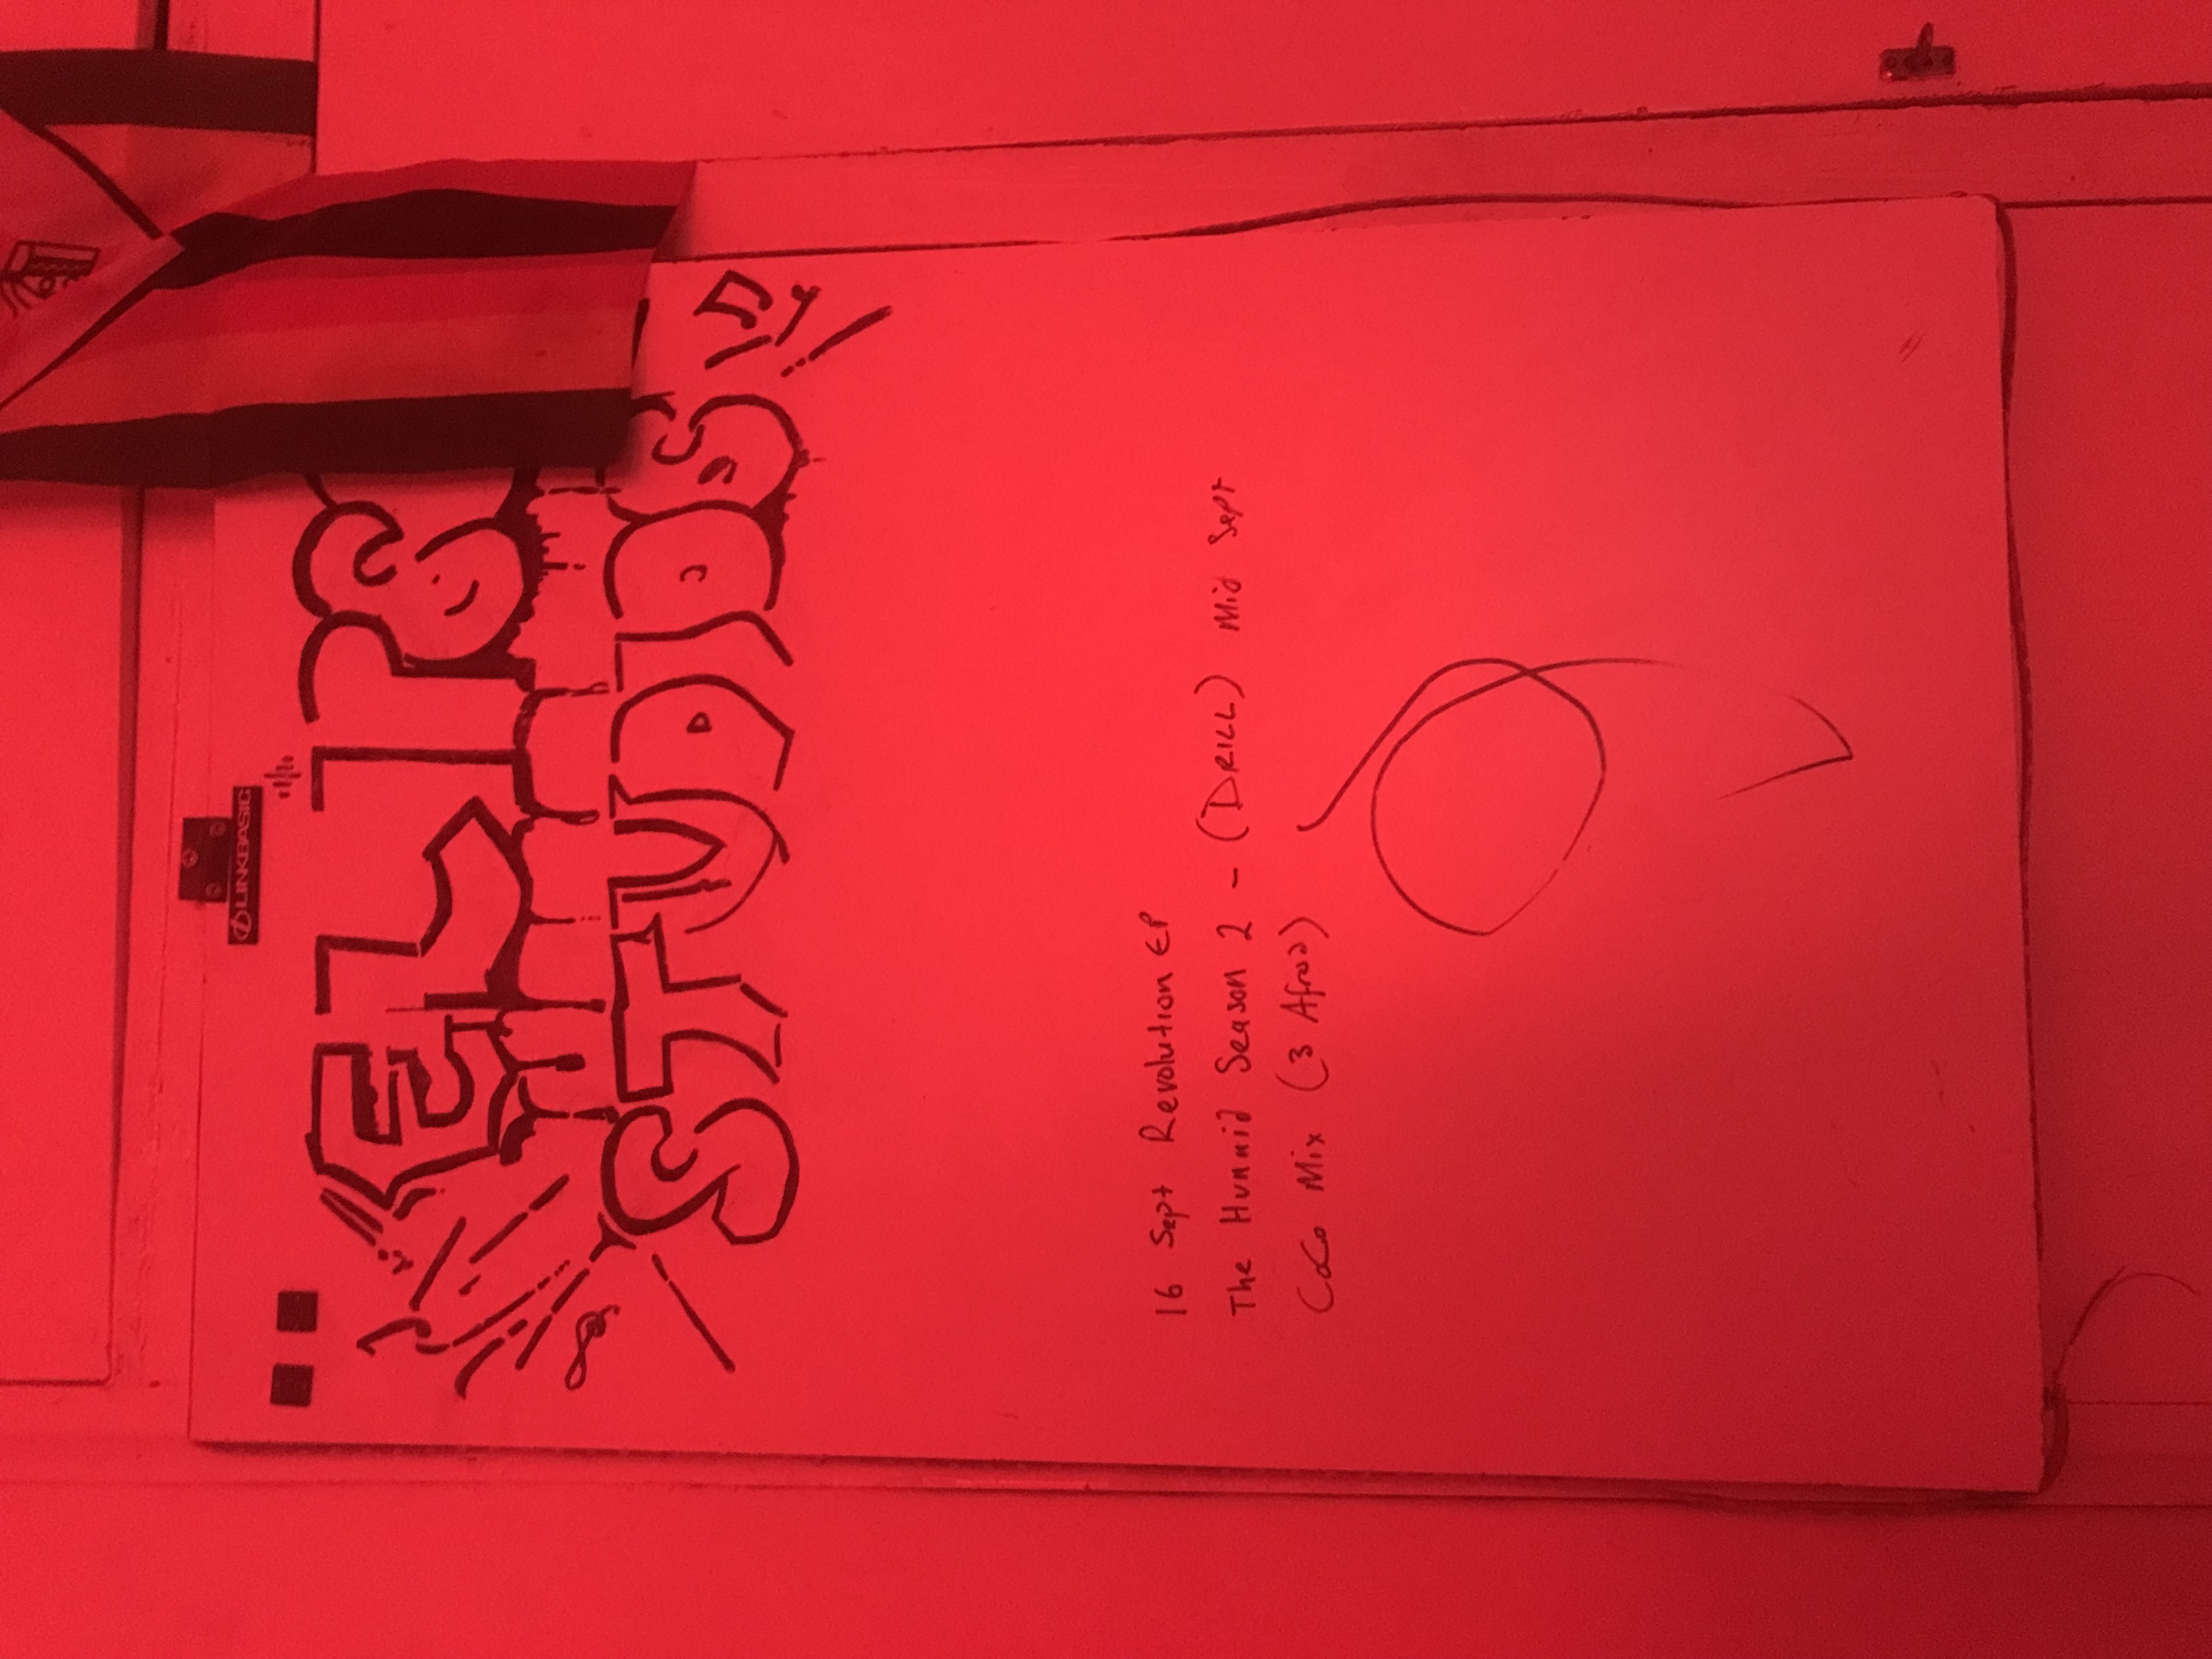 LINKBASIC
STUDIOS
16 Sept Revolution EP
The Hunnid Season 2 - (DRILL) Mid Sept
CoCo Mix (3 Afros)